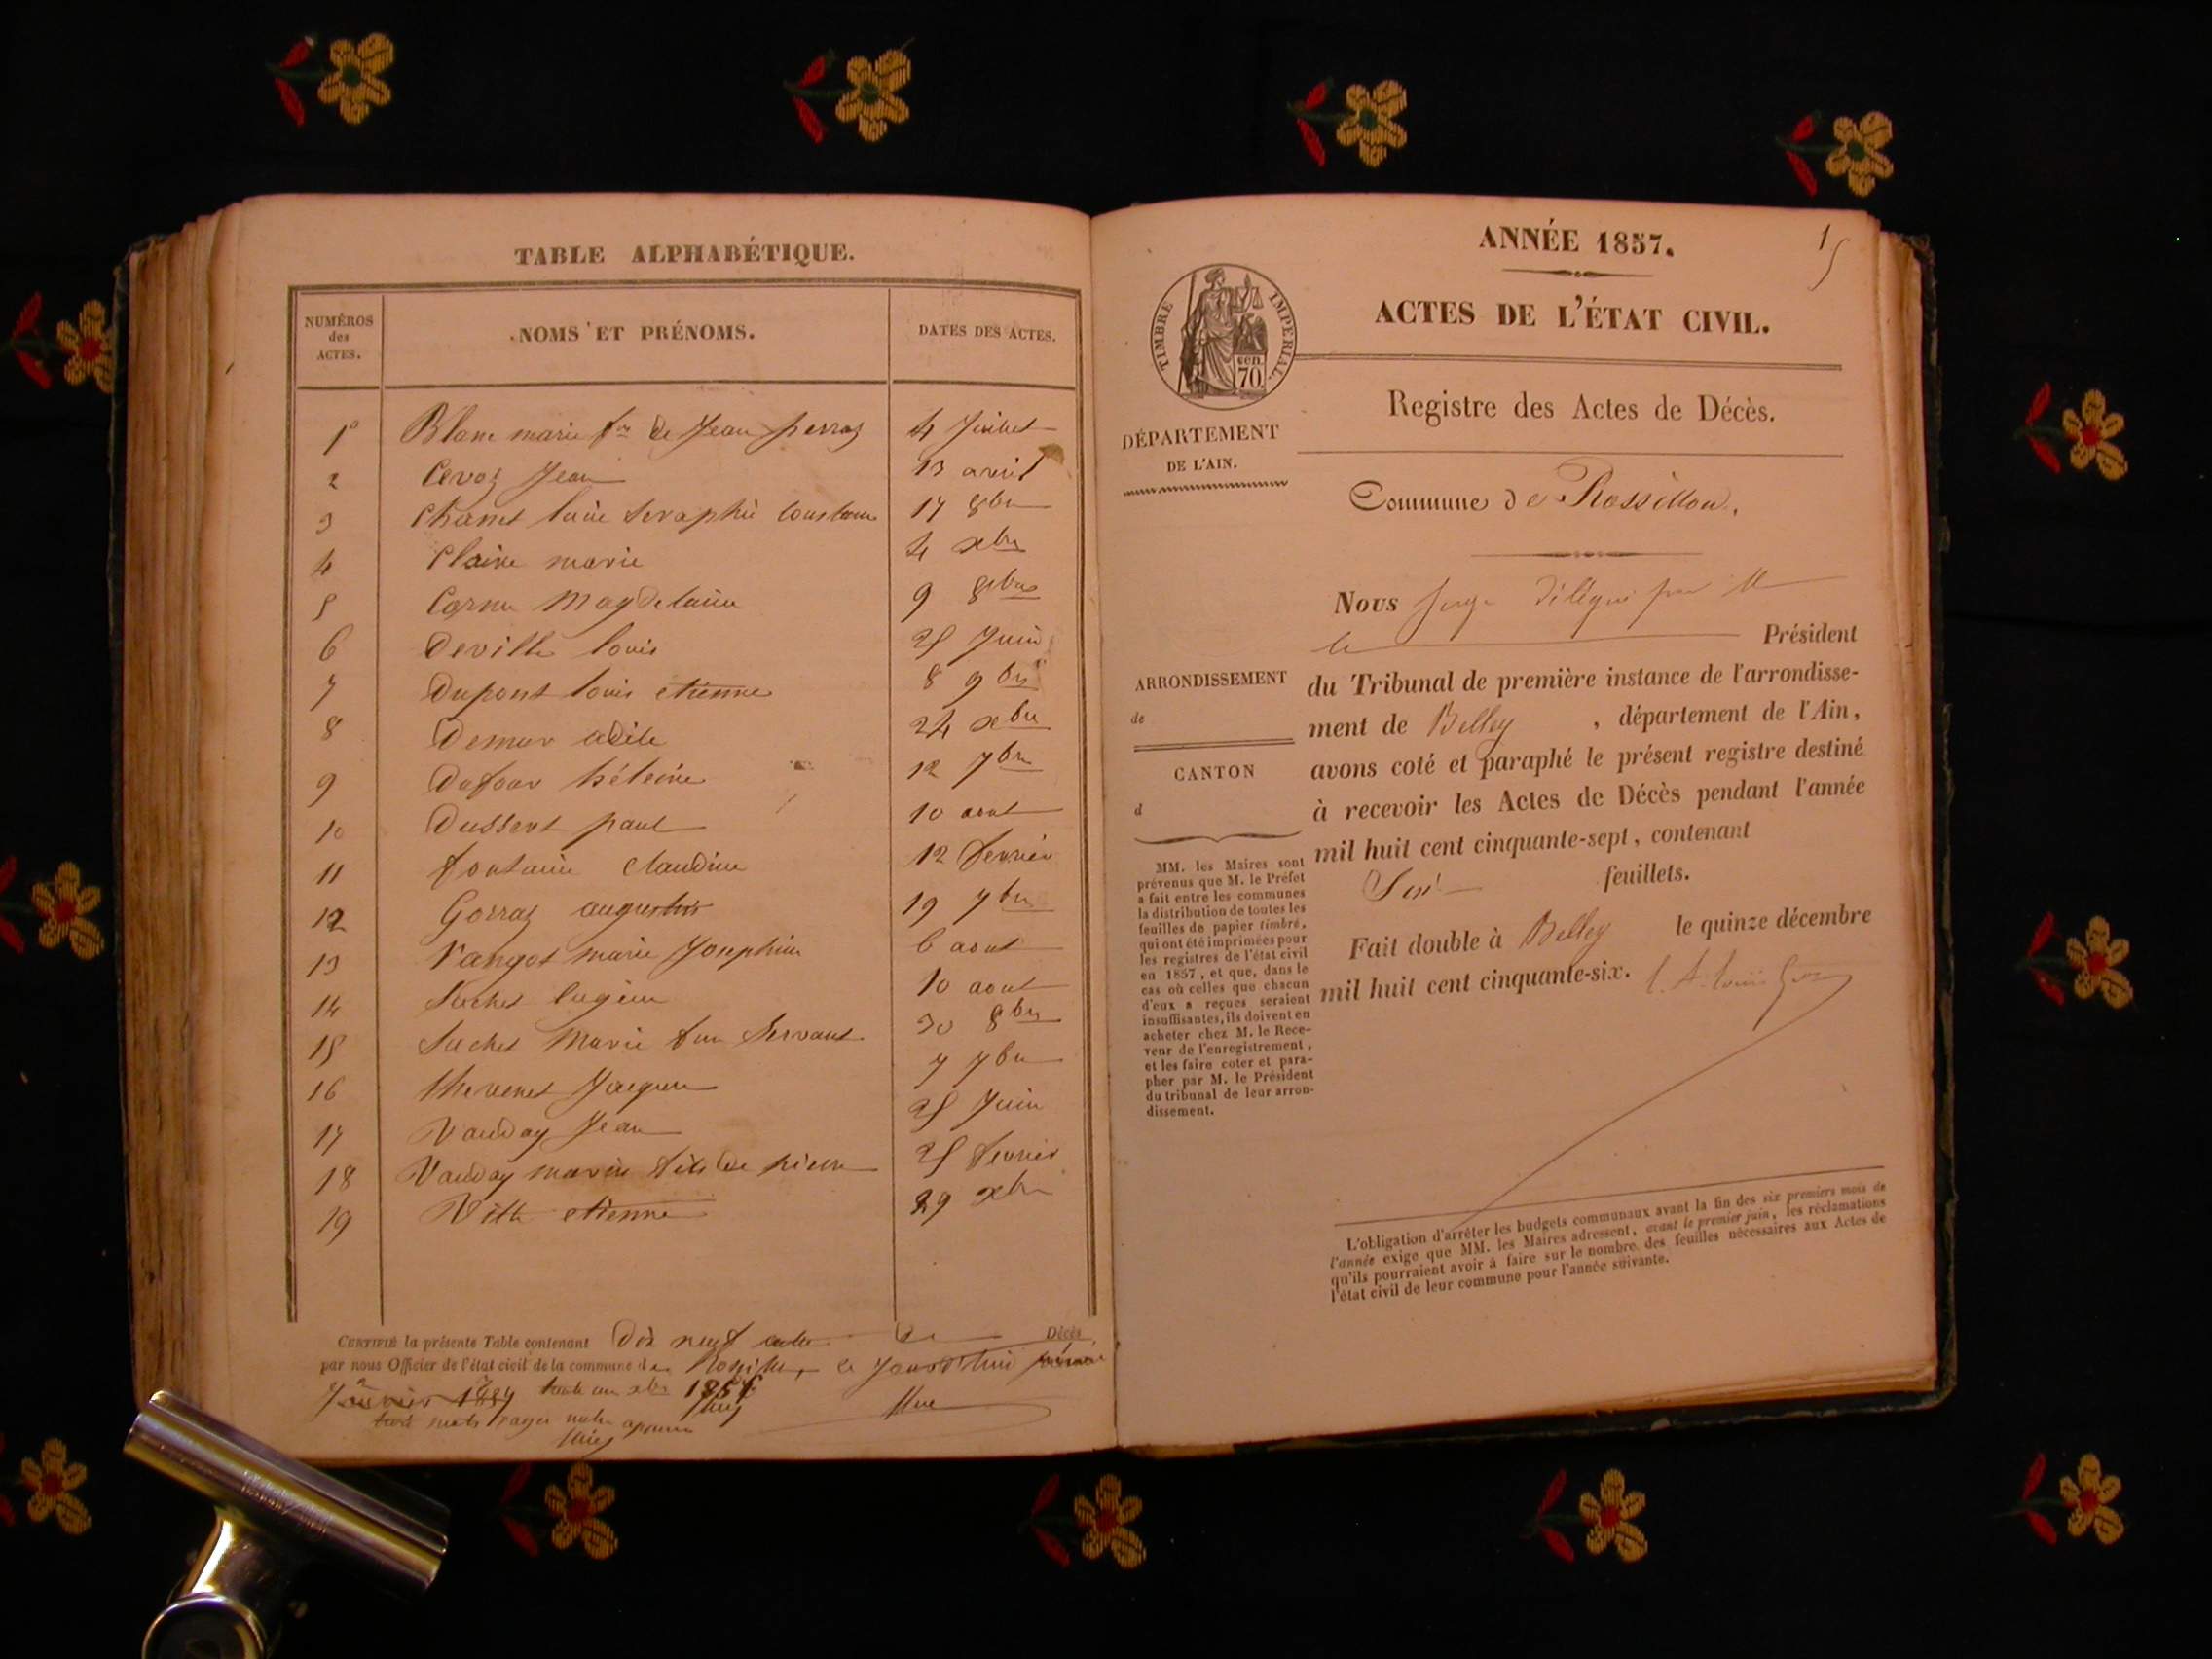 TABLE ALPHABÉTIQUE.
NUMÉROS
des
ACTES.
NOMS ET PRÉNOMS.
DATES DES ACTES.
1° Blanc marie fme de Jean perraz 4 Juillet
2 Cevoz Jean 13 avril
3 Seraphie 17 8bre
4 Claire marie 4 xbre
5 Magdelaine 9 8bre
6 Deville louis 25 Juin
7 Dupont louis etienne 8 9bre
8 24 xbre
9 Dufour hélène 12 7bre
10 Dussert paul 10 aout
11 fontaine Claudine 12 fevrier
12 Gorraz 19 7bre
13 marie Josephine 6 aout
14 Suchet 10 aout
15 Suchet Marie fme Servant 30 8bre
16 thevenet 7 7bre
17 Vauday Jean 25 Juin
18 Vauday de pierre 25 fevrier
19 etienne 29 xbre
CERTIFIÉ la présente Table contenant Dix neuf actes de Décès,
par nous Officier de l'état civil de la commune de Rossillon, ce Jourd'hui
Janvier
ANNÉE 1857.
1
ACTES DE L'ÉTAT CIVIL.
TIMBRE IMPERIAL.
cen.
70.
Registre des Actes de Décès.
DÉPARTEMENT
DE L'AIN.
Commune de Rossillon.
Nous Juge Délégué par M
le Président
ARRONDISSEMENT
de
du Tribunal de première instance de l'arrondisse-
ment de Belley, département de l'Ain,
CANTON
d
avons coté et paraphé le présent registre destiné
à recevoir les Actes de Décès pendant l'année
mil huit cent cinquante-sept, contenant
Six feuillets.
Fait double à Belley le quinze décembre
mil huit cent cinquante-six.
MM. les Maires sont
prévenus que M. le Préfet
a fait entre les communes
la distribution de toutes les
feuilles de papier timbré,
qui ont été imprimées pour
les registres de l'état civil
en 1857, et que, dans le
cas où celles que chacun
d'eux a reçues seraient
insuffisantes, ils doivent en
acheter chez M. le Rece-
veur de l'enregistrement,
et les faire coter et para-
pher par M. le Président
du tribunal de leur arron-
dissement.
L'obligation d'arrêter les budgets communaux avant la fin des six premiers mois de
l'année exige que MM. les Maires adressent, avant le premier juin, les réclamations
qu'ils pourraient avoir à faire sur le nombre des feuilles nécessaires aux Actes de
l'état civil de leur commune pour l'année suivante.